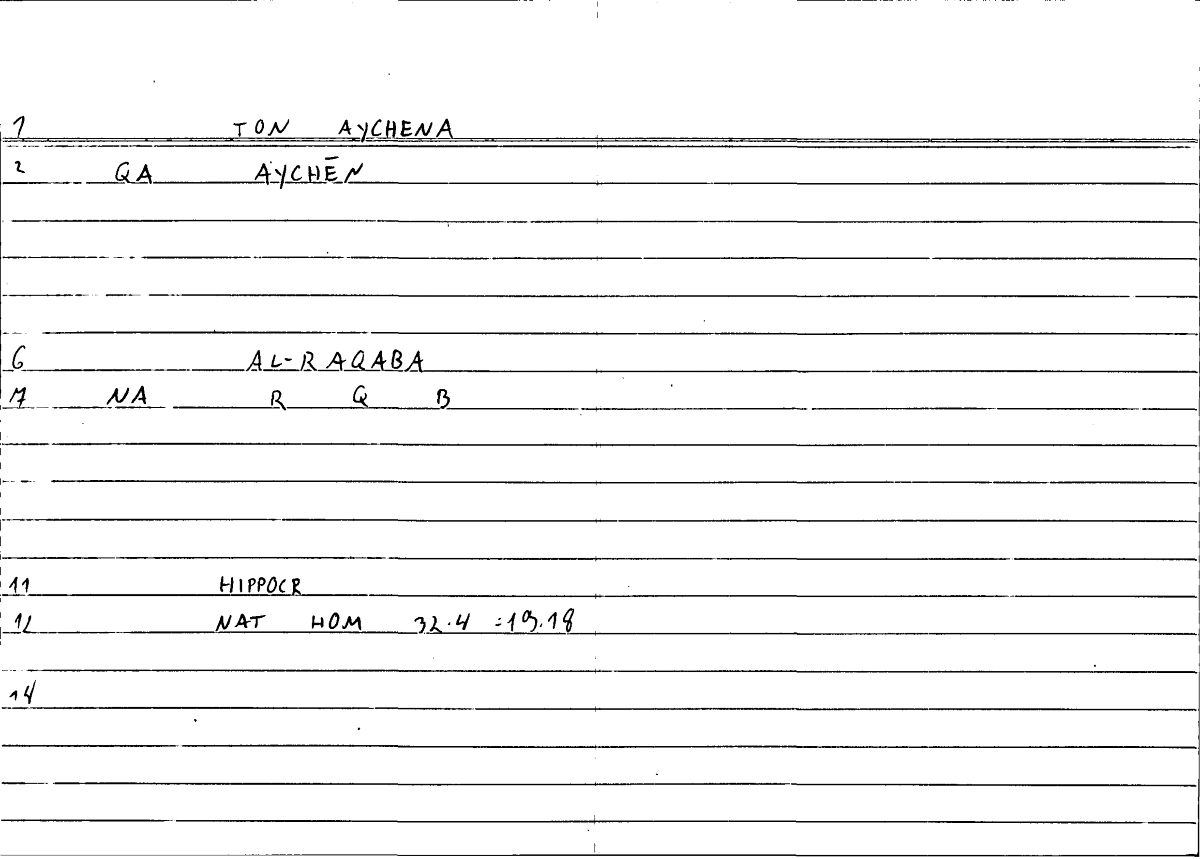 1 TON AYCHENA
2 QA AYCHĒN
6 AL-RAQABA
7 NA R Q B
11 HIPPOCR
12 NAT HOM 32.4 =19.18
14